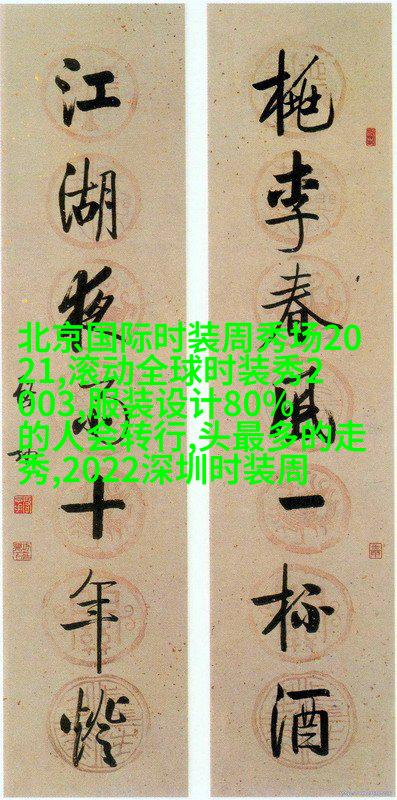 桃李春風一杯酒
江湖夜雨十年燈
北京国际时装周秀场20
21,滚动全球时装秀2
003,服装设计80%
的人会转行,头最多的走
秀,2022深圳时装周